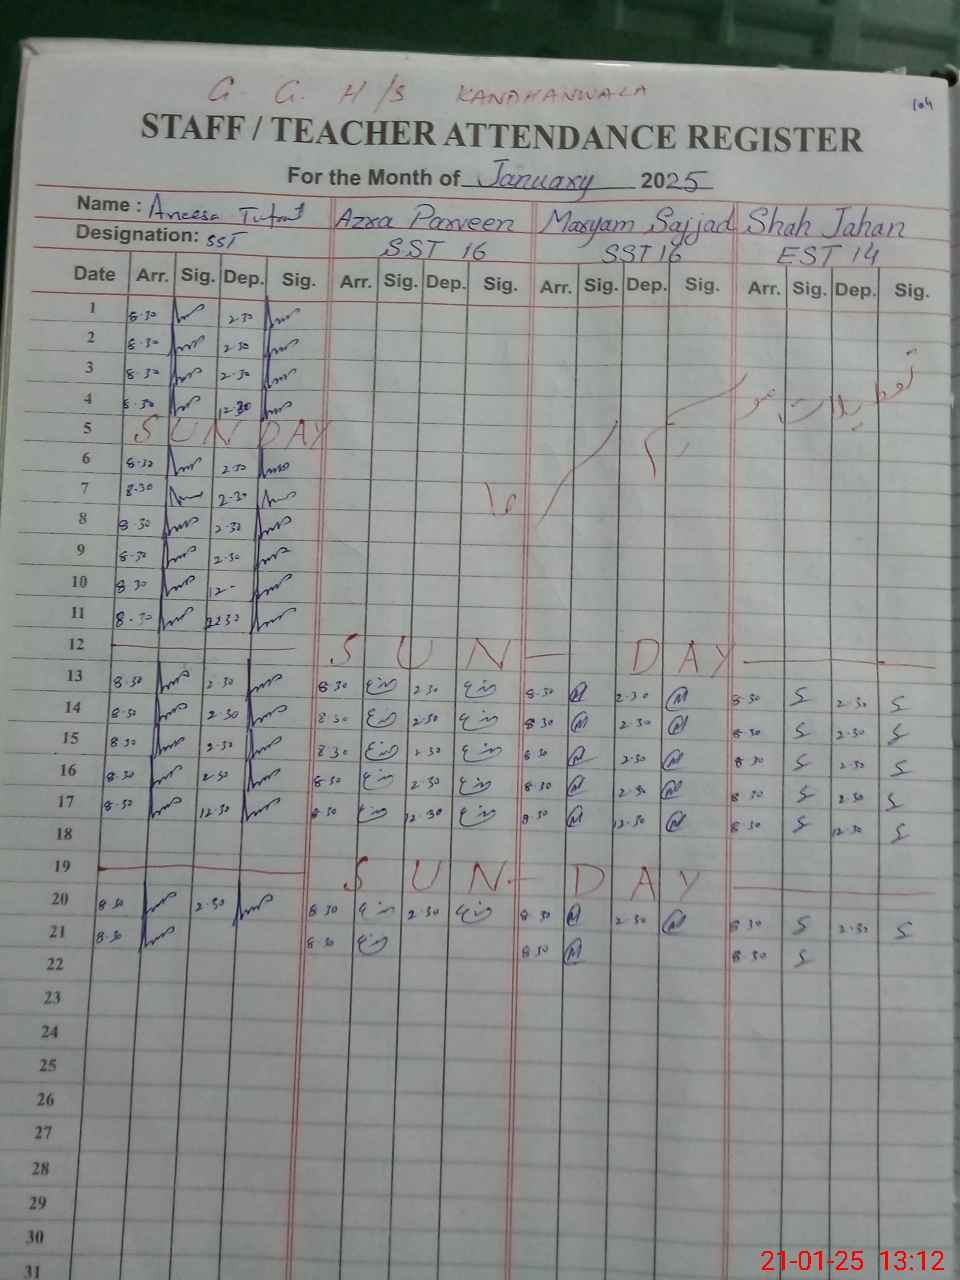 G. G. H/S KANDHANWALA
104
STAFF / TEACHER ATTENDANCE REGISTER
For the Month of January 2025
Name : Aneesa Azra Parveen Maryam Sajjad Shah Jahan
Designation: SST SST 16 SST 16 EST 14
Date Arr. Sig. Dep. Sig. Arr. Sig. Dep. Sig. Arr. Sig. Dep. Sig. Arr. Sig. Dep. Sig.
1 8-30 2-30
2 8-30 2-30
3 8-30 2-30
4 8-30 12-30
موسم تعطیلات
5 SUNDAY
6 8-30 2-30
7 8-30 2-30
8 8-30 2-30
9 8-30 2-30
10 8 30 12-
11 8-30
12 SUN-DAY
13 8-30 2-30 8-30 2-30 8-30 M 2-30 M 8-30 S 2-30 S
14 8-30 2-30 8-30 2-30 8-30 M 2-30 M 8-30 S 2-30 S
15 8-30 2-30 8-30 2-30 8-30 M 2-30 M 8-30 S 2-30 S
16 8-30 2-30 8-30 2-30 8-30 M 2-30 M 8-30 S 2-30 S
17 8-30 12-30 8-30 12-30 8-30 M 12-30 M 8-30 S 12-30 S
18
19 SUN-DAY
20 8-30 2-30 8-30 2-30 8-30 M 2-30 M 8-30 S 2-30 S
21 8-30 8-30 8-30 M 8-30 S
22
23
24
25
26
27
28
29
30
31
21-01-25 13:12